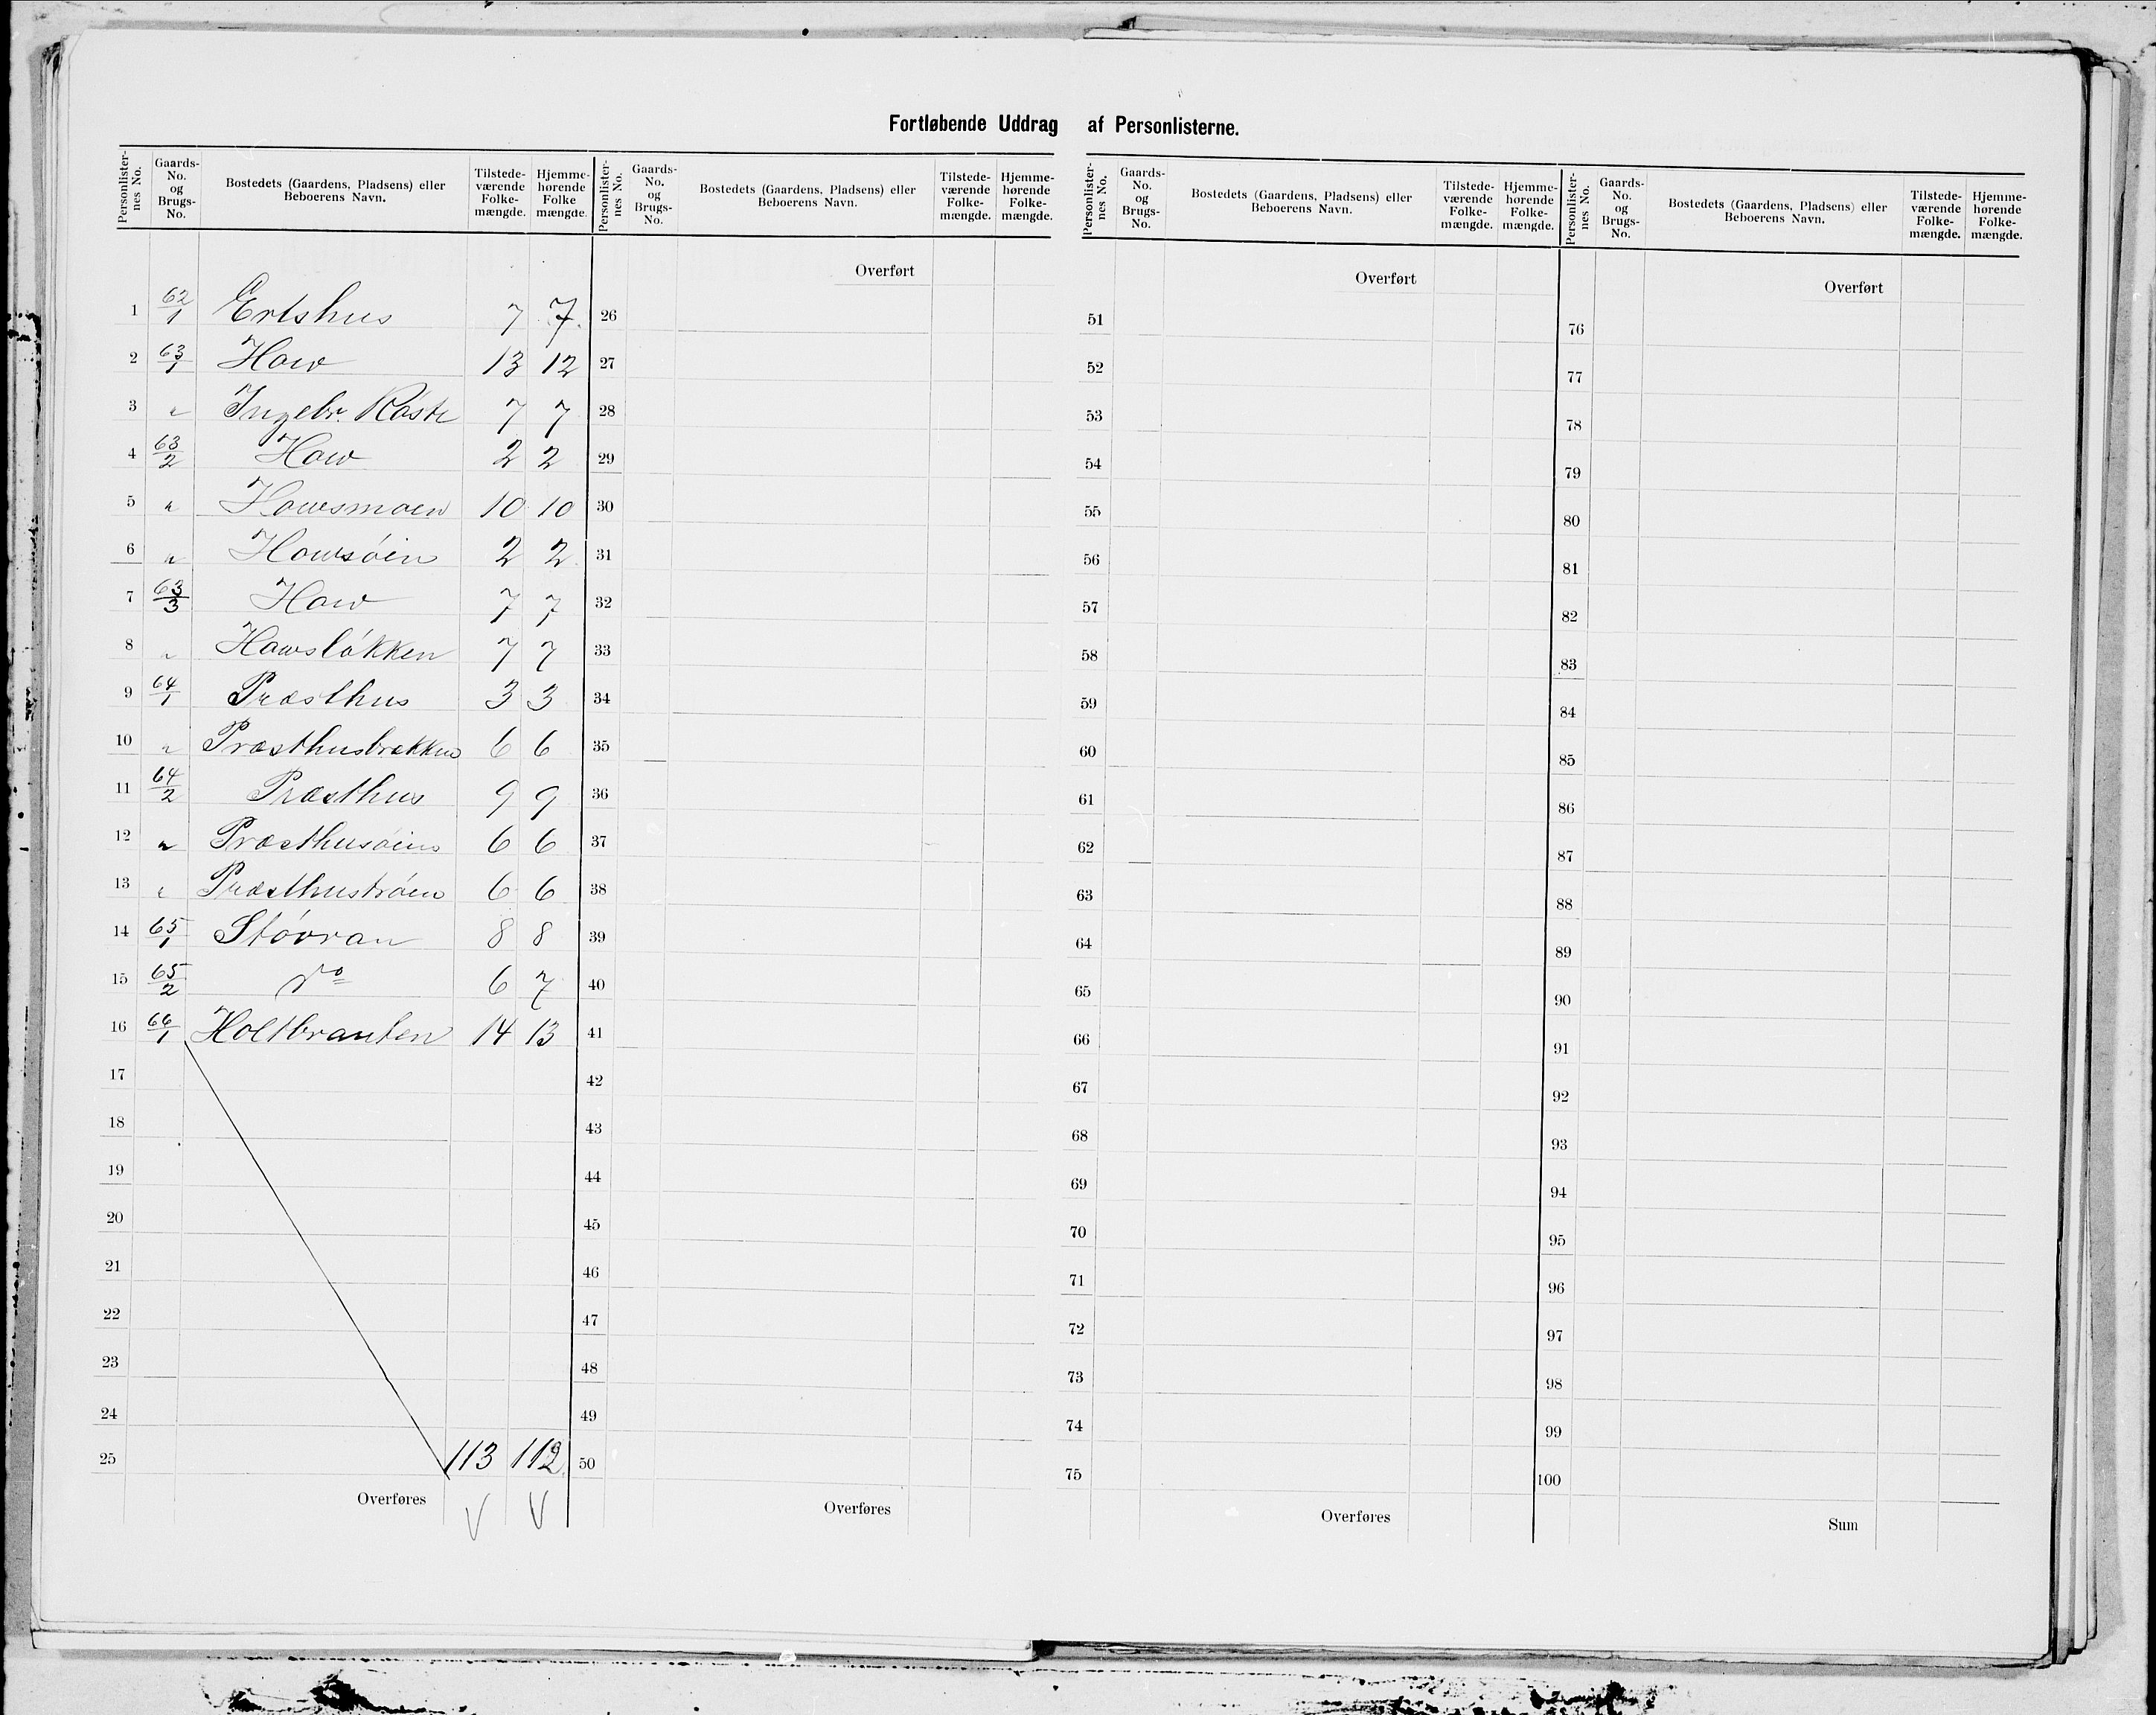 Fortløbende Uddrag af Personlisterne.
Personlister-nes No. | Gaards-No. og Brugs-No. | Bostedets (Gaardens, Pladsens) eller Beboerens Navn. | Tilstede-værende Folke-mængde. | Hjemme-hørende Folke mængde.
1 62/1 Ertshus 7 7
2 63/1 Haw 13 12
3 " Ingebr. Røste 7 7
4 63/2 Haw 2 2
5 " Hawsmoen 10 10
6 " Hawsøien 2 2
7 63/3 Haw 7 7
8 " Hawsløkken 7 7
9 64/1 Præsthus 3 3
10 " Præsthusbrækken 6 6
11 64/2 Præsthus 9 9
12 " Præsthusøien 6 6
13 " Præsthustrøen 6 6
14 65/1 Støvran 8 8
15 65/2 do 6 7
16 66/1 Holtbrauten 14 13
17
18
19
20
21
22
23
24
25 113 112
Overføres V V
Personlister-nes No. | Gaards-No. og Brugs-No. | Bostedets (Gaardens, Pladsens) eller Beboerens Navn. | Tilstede-værende Folke-mængde. | Hjemme-hørende Folke-mængde.
Overført
26
27
28
29
30
31
32
33
34
35
36
37
38
39
40
41
42
43
44
45
46
47
48
49
50
Overføres
Personlister-nes No. | Gaards-No. og Brugs-No. | Bostedets (Gaardens, Pladsens) eller Beboerens Navn. | Tilstede-værende Folke-mængde. | Hjemme-hørende Folke-mængde.
Overført
51
52
53
54
55
56
57
58
59
60
61
62
63
64
65
66
67
68
69
70
71
72
73
74
75
Overføres
Personlister-nes No. | Gaards-No. og Brugs-No. | Bostedets (Gaardens, Pladsens) eller Beboerens Navn. | Tilstede-værende Folke-mængde. | Hjemme-hørende Folke-mængde.
Overført
76
77
78
79
80
81
82
83
84
85
86
87
88
89
90
91
92
93
94
95
96
97
98
99
100
Sum